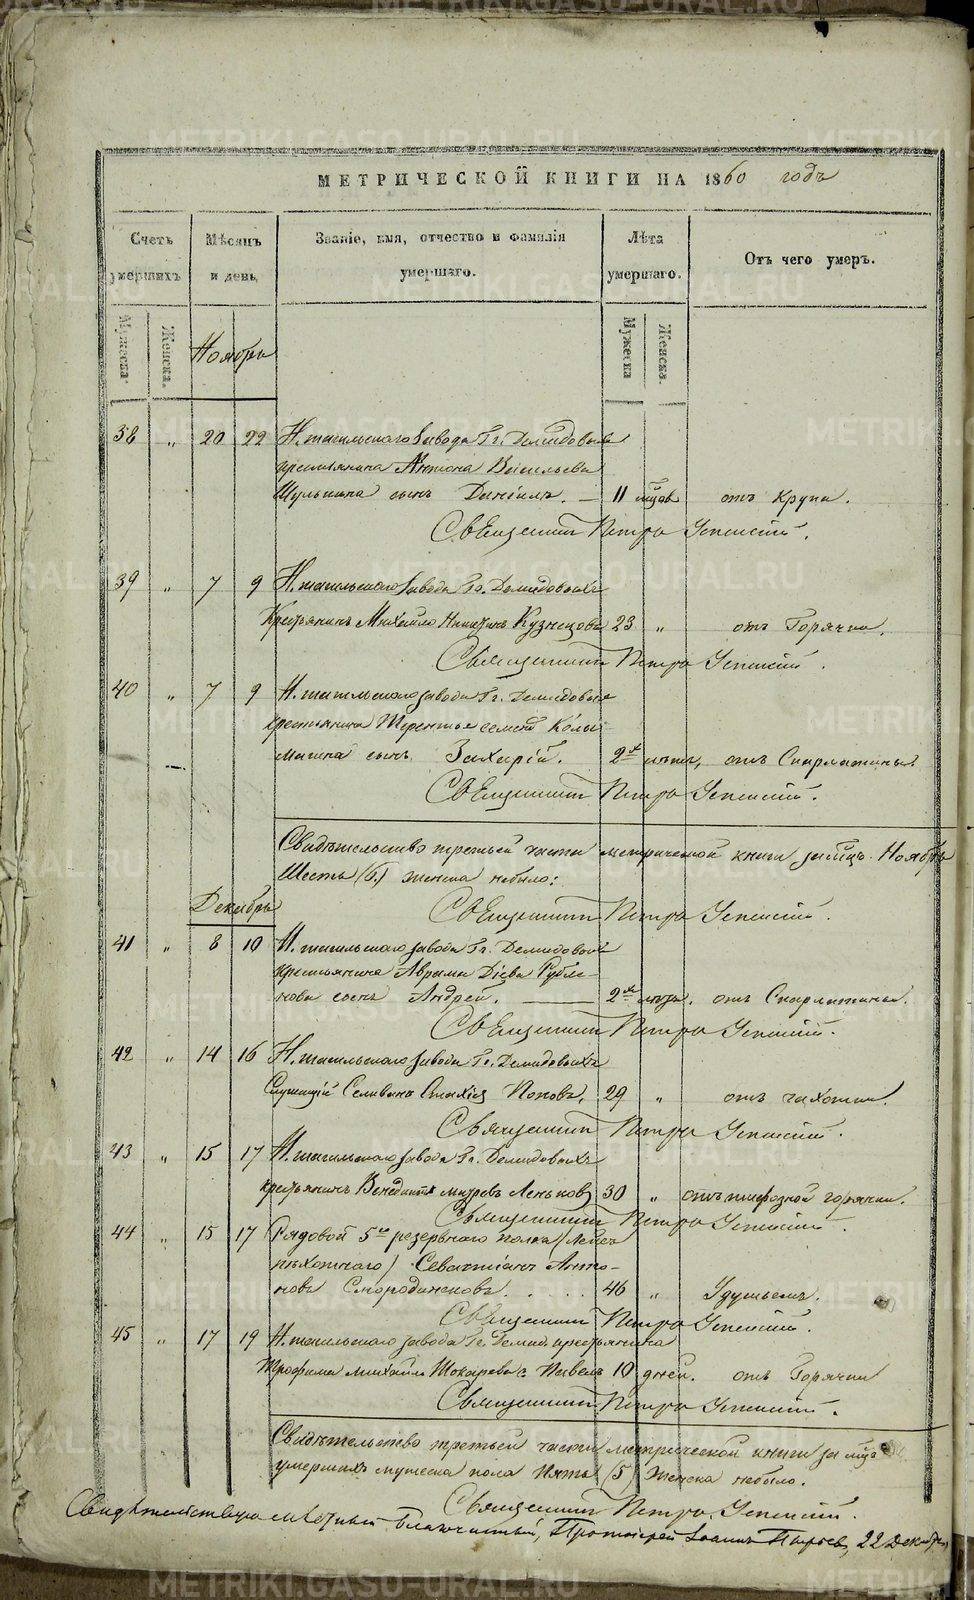 МЕТРИЧЕСКОЙ КНИГИ НА 1860 годъ
Счетъ умершихъ
Мѣсяцъ и день
Званіе, имя, отчество и фамилія умершаго.
Лѣта умершаго.
Отъ чего умеръ.
Мужеска.
Женска.
Мужеска
Женска.
Ноябрь
38 „ 20 22 Н. тагильскаго завода Гг. Демидовыхъ
крестьянина Антона Васильева
Шулькина сынъ Даніилъ. — 11 мцов отъ крупа.
Священникъ Петръ Успенскій.
39 „ 7 9 Н. тагильскаго завода Гг. Демидовыхъ
Крестьянинъ Михайло Никитинъ Кузнецовъ 23 „ отъ Горячки.
Священникъ Петръ Успенскій.
40 „ 7 9 Н. тагильскаго завода Гг. Демидовыхъ
крестьянина Терентья Колы-
магина сынъ Захарій. 2хъ лѣтъ, отъ Скарлатины.
Священникъ Петръ Успенскій.
Свидѣтельство третьей части метрической книги за мцъ Ноябрь
Шесть (6.) женска небыло:
Священникъ Петръ Успенскій.
Декабрь
41 „ 8 10 Н. тагильскаго завода Гг. Демидовыхъ
крестьянина Аврама Діева
сынъ Андрей. — 2хъ лѣтъ. отъ Скарлатины.
Священникъ Петръ Успенскій.
42 „ 14 16 Н. тагильскаго завода Гг. Демидовыхъ
Служащій Селиванъ Поповъ, 29 „ отъ чахотки.
Священникъ Петръ Успенскій.
43 „ 15 17 Н. тагильскаго завода Гг. Демидовыхъ
крестьянинъ Венедиктъ Леньковъ 30 „ отъ тифозной горячки.
Священникъ Петръ Успенскій.
44 „ 15 17 Рядовой 5го резервнаго полка
пѣхотнаго) Севастіанъ Анто-
новъ Смородинсковъ. . . . . 46 „ Удушьемъ.
Священникъ Петръ Успенскій.
45 „ 17 19 Н. тагильскаго завода Гг. Демид. крестьянина
Трофима Михайл. Токарева с. Павелъ 10 дней. отъ Горячки
Священникъ Петръ Успенскій.
Свидѣтельство третьей части метрической книги за мцъ
умершихъ мужеска пола Пять (5) Женска небыло.
Священникъ Петръ Успенскій.
Свидѣтельствую мѣстный Благочинный, Протоіерей Іоаннъ 22 Декабря
METRIKI.GASO-URAL.RU